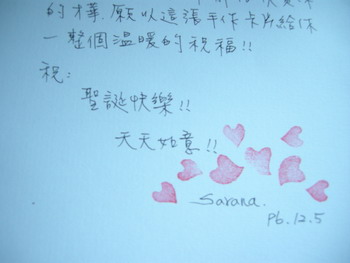 的樺,願以這張手作卡片給你
一整個溫暖的祝福!!
祝:
聖誕快樂!!
天天如意!!
Sarana.
P6.12.5